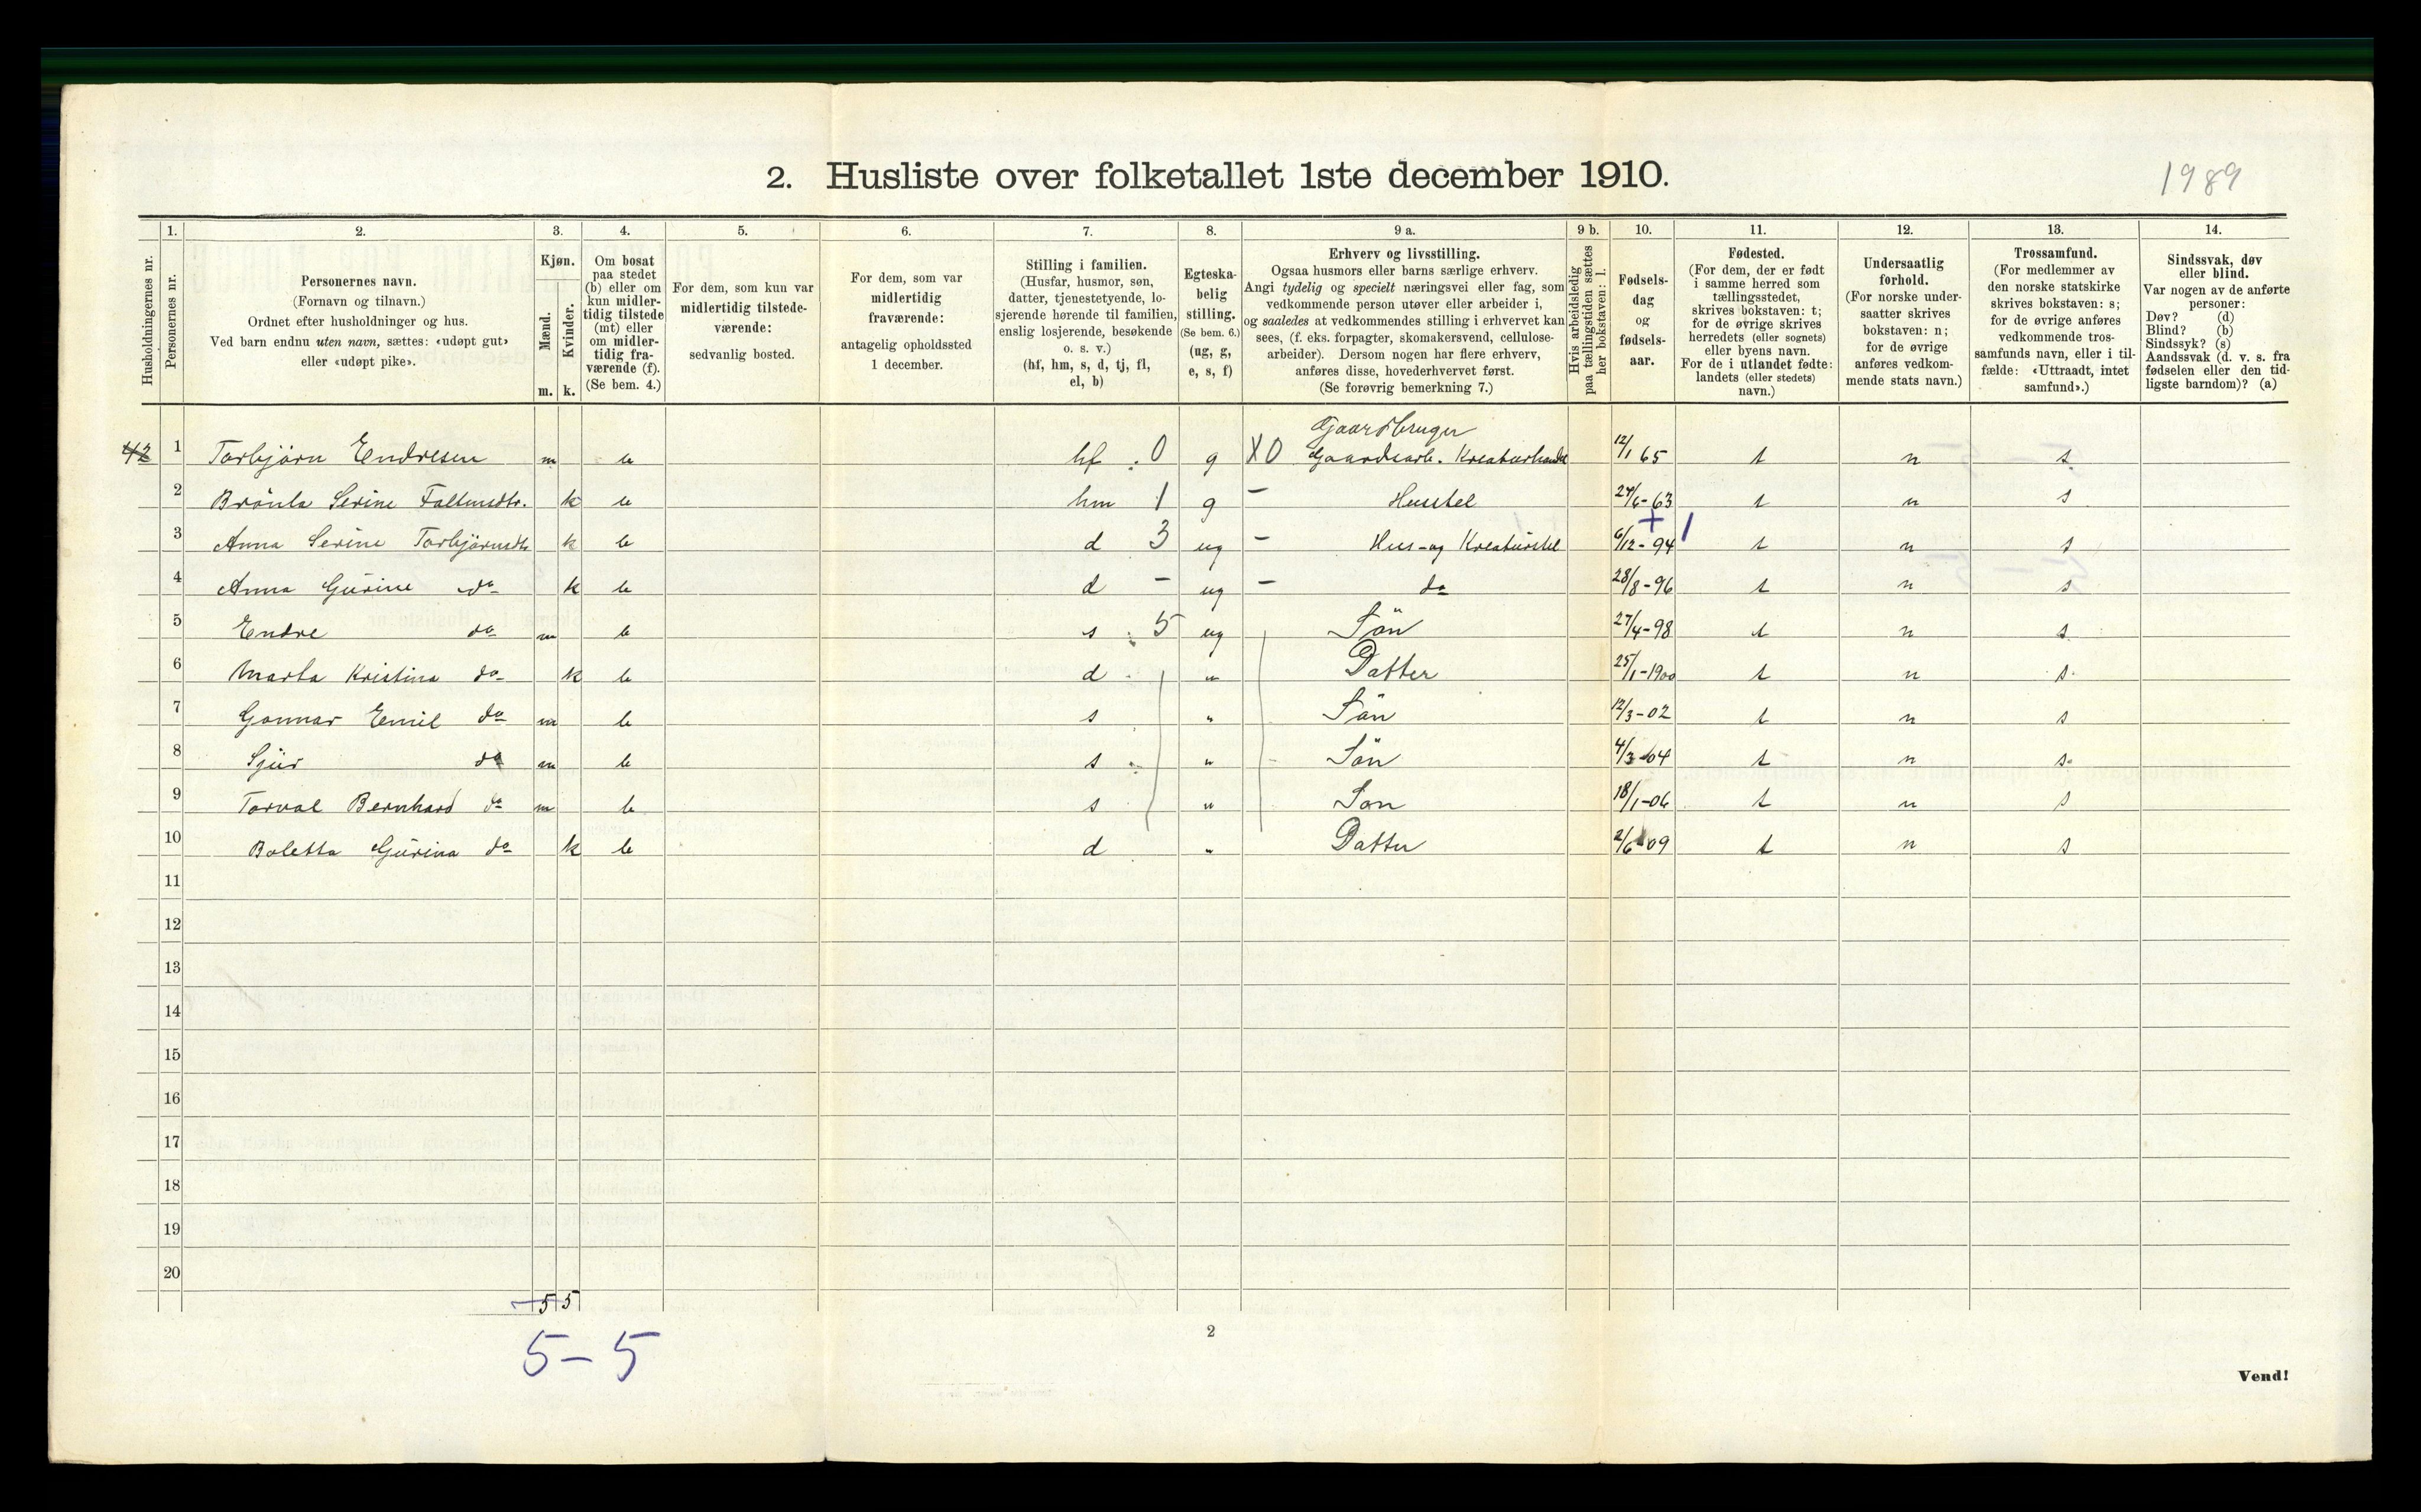 2. Husliste over folketallet 1ste december 1910.
1989
1. 2. 3. 4. 5. 6. 7. 8. 9 a. 9 b. 10. 11. 12. 13. 14.
Husholdningernes nr.
Personernes nr.
Personernes navn.
(Fornavn og tilnavn.)
Ordnet efter husholdninger og hus.
Ved barn endnu uten navn, sættes: «udøpt gut»
eller «udøpt pike».
Kjøn.
Mænd.
Kvinder.
m. k.
Om bosat
paa stedet
(b) eller om
kun midler-
tidig tilstede
(mt) eller
om midler-
tidig fra-
værende (f).
(Se bem. 4.)
For dem, som kun var
midlertidig tilstede-
værende:
sedvanlig bosted.
For dem, som var
midlertidig
fraværende:
antagelig opholdssted
1 december.
Stilling i familien.
(Husfar, husmor, søn,
datter, tjenestetyende, lo-
sjerende hørende til familien,
enslig losjerende, besøkende
o. s. v.)
(hf, hm, s, d, tj, fl,
el, b)
Egteska-
belig
stilling.
(Se bem. 6.)
(ug, g,
e, s, f)
Erhverv og livsstilling.
Ogsaa husmors eller barns særlige erhverv.
Angi tydelig og specielt næringsvei eller fag, som
vedkommende person utøver eller arbeider i,
og saaledes at vedkommendes stilling i erhvervet kan
sees, (f. eks. forpagter, skomakersvend, cellulose-
arbeider). Dersom nogen har flere erhverv,
anføres disse, hovederhvervet først.
(Se forøvrig bemerkning 7.)
Hvis arbeidsledig
paa tællingstiden sættes
her bokstaven: l.
Fødsels-
dag
og
fødsels-
aar.
Fødested.
(For dem, der er født
i samme herred som
tællingsstedet,
skrives bokstaven: t;
for de øvrige skrives
herredets (eller sognets)
eller byens navn.
For de i utlandet fødte:
landets (eller stedets)
navn.)
Undersaatlig
forhold.
(For norske under-
saatter skrives
bokstaven: n;
for de øvrige
anføres vedkom-
mende stats navn.)
Trossamfund.
(For medlemmer av
den norske statskirke
skrives bokstaven: s;
for de øvrige anføres
vedkommende tros-
samfunds navn, eller i til-
fælde: «Uttraadt, intet
samfund».)
Sindssvak, døv
eller blind.
Var nogen av de anførte
personer:
Døv? (d)
Blind? (b)
Sindssyk? (s)
Aandssvak (d. v. s. fra
fødselen eller den tid-
ligste barndom)? (a)
Gaardbruger
42 1 Torbjörn Endresen m b hf 0 g X0 Gaardsarb. Kreaturhandel 12/1 65 t n s
2 Serine k b hm 1 g - Husstel 24/6-63 t n s
3 Anna Serine Torbjörnsdtr k b d 3 ug - Hus-og Kreaturstel 6/12-94 t n s
4 Anna Gürine do k b d - ug - do 28/8-96 t n s
5 Endre do m b s 5 ug Sön 27/4-98 t n s
6 Marta Kristina do k b d " Datter 25/1-1900 t n s
7 Gonnar Emil do m b s " Sön 12/3-02 t n s
8 Sjür do m b s " Sön 4/3-04 t n s
9 Torval Bernhard do m b s " Son 18/1-06 t n s
10 Boletta Gürina do k b d " Datter 2/6 09 t n s
11
12
13
14
15
16
17
18
19
20
5 5
5-5
2
Vend!